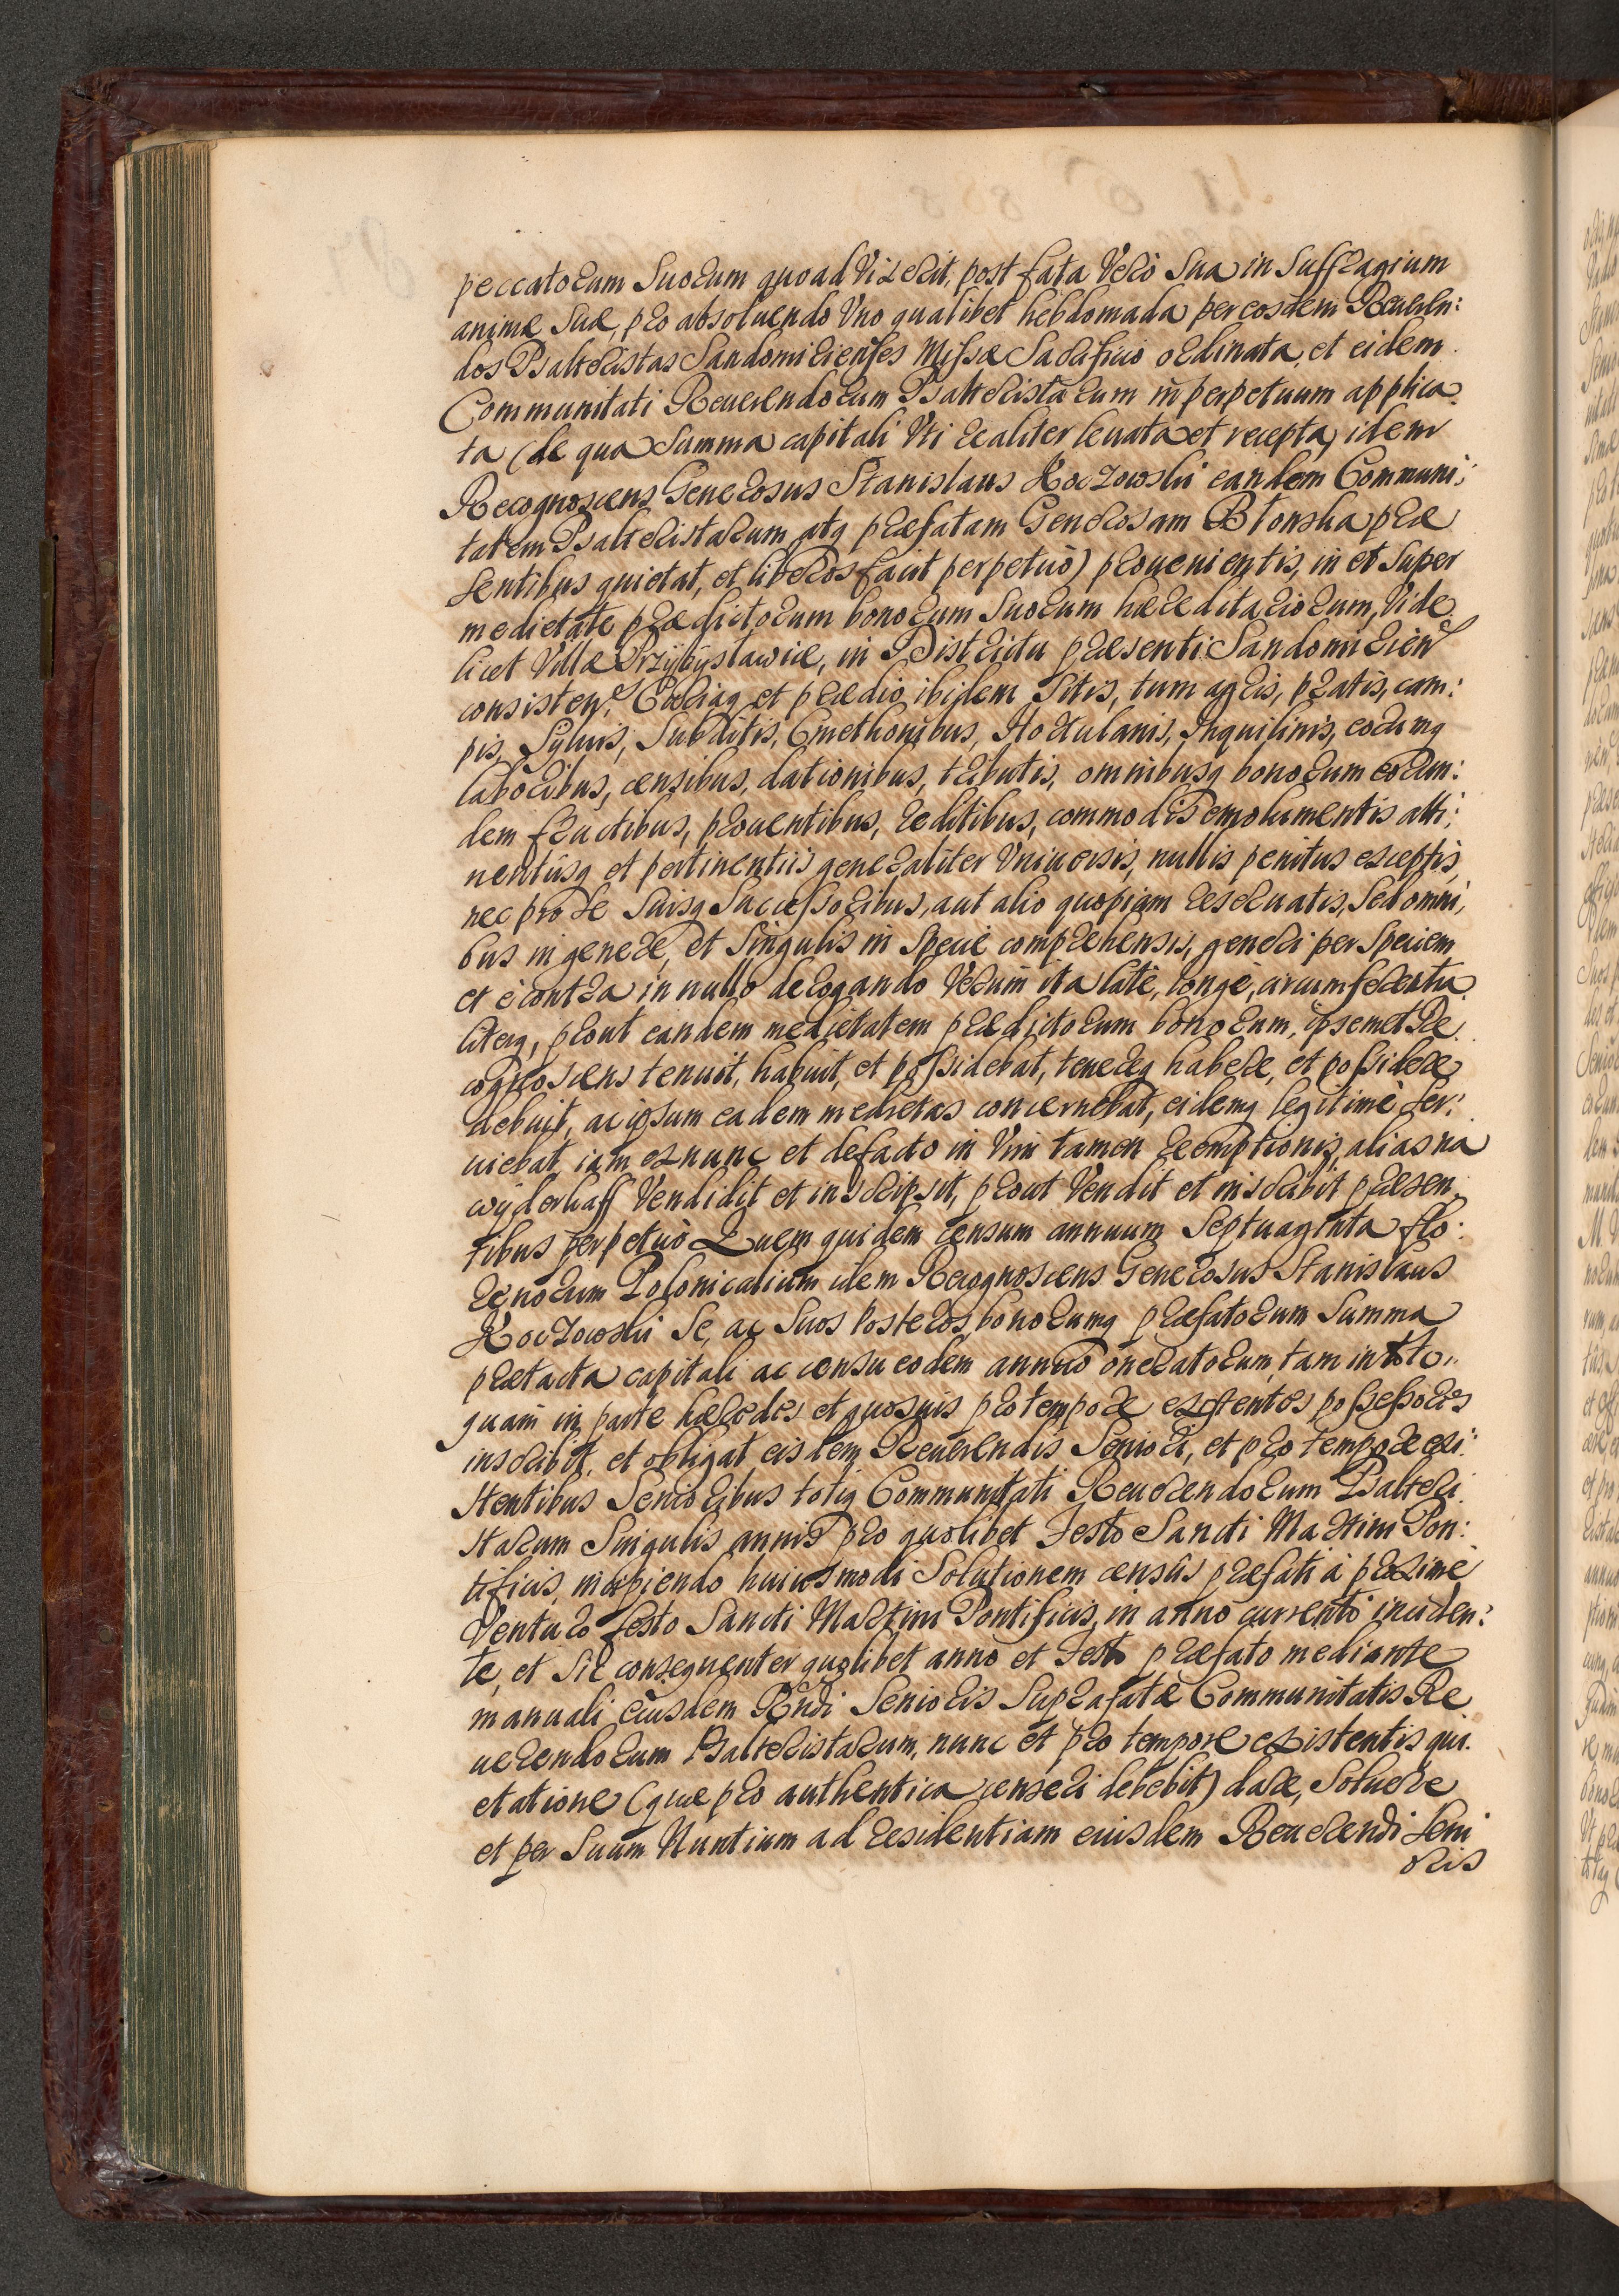 peccatorum Suorum quoad Vixerit, post fata Verò Sua in Suffragium
animæ Suæ, pro absoluendo Vno qualibet hebdomada per eosdem Reueren:
dos Psalteristas Sandomirienses Missæ Sacrificio ordinata, et eidem
Communitati Reuerendorum Psalteristarum in perpetuum applica:
ta (de qua Summa capitali Vti realiter leuata et recepta, idem
Recognoscens Generosus Stanislaus Koczowski eandem Communi:
tatem Psalteristarum atq præfatam Generosam Błonska præ
sentibus quietat, et liberos facit perpetuò) prouenientis, in et Super
medietate prædictorum bonorum Suorum hæreditariorum, Vide
licet Villæ Przÿbÿsławice, in Districtu præsenti Sandomirien
consisten. Curiaq et prædio ibidem Sitis, tum agris, pratis, cam:
pis, Syluis, Subditis, Cmethonibus, Hortulanis, Inquilinis, eorumq
laboribus, censibus, dationibus, tributis, omnibusq bonorum eorun:
dem fructibus, prouentibus, reditibus, commodis emolumentis atti:
nentiisq et pertinentiis generaliter Vniuersis, nullis penitus exceptis,
nec pro se Suisq Successoribus, aut alio quopiam reseruatis, Sed omni,
bus in genere, et Singulis in Specie comprehensis, generi per Speciem
et è contra in nullo derogando Verùm ita latè, longè, circumferentia
literq, prout eandem medietatem prædictorum bonorum, ipsemet Re:
cognoscens tenuit, habuit, et possidebat, tenereq habere, et possidere
debuit, ac ipsum eadem medietas concernebat, eidemq legitimè ser:
uiebat, iam ex nunc et defacto in Vim tamen reemptionis, alias na
wÿderkaff Vendidit et inscripsit, prout Vendit et inscribit præsen
tibus perpetuò Quem quidem censum annuum Septuaginta flo:
renorum Polonicalium idem Recognoscens Generosus Stanislaus
Koczowski Se, ac Suos Posteros, bonorumq præfatorum Summa
prætacta capitali ac censu eodem annuo oneratorum, tam in toto
quàm in parte hæredes et quosuis pro tempore existentes possessores
inscribit, et obligat eisdem Reuerendis Seniori, et pro tempore exi:
stentibus Senioribus totiq Communitati Reuerendorum Psalteri
starum Singulis annis pro quolibet Festo Sancti Martini Pon:
tificis, incipiendo huiusmodi Solutionem censûs præfati à proximè
Venturo festo Sancti Martini Pontificis, in anno currenti inciden:
te, et Sic consequenter quolibet anno et Festo præfato mediante
manuali eiusdem Rndi Senioris Suprafatæ Communitatis Re
uerendorum Psalteristarum, nunc et pro tempore existentis qui:
etatione (quæ pro authentica censeri debebit) dare, Soluere
et per Suum Nuntium ad residentiam eiusdem Reuerendi Seni
oris